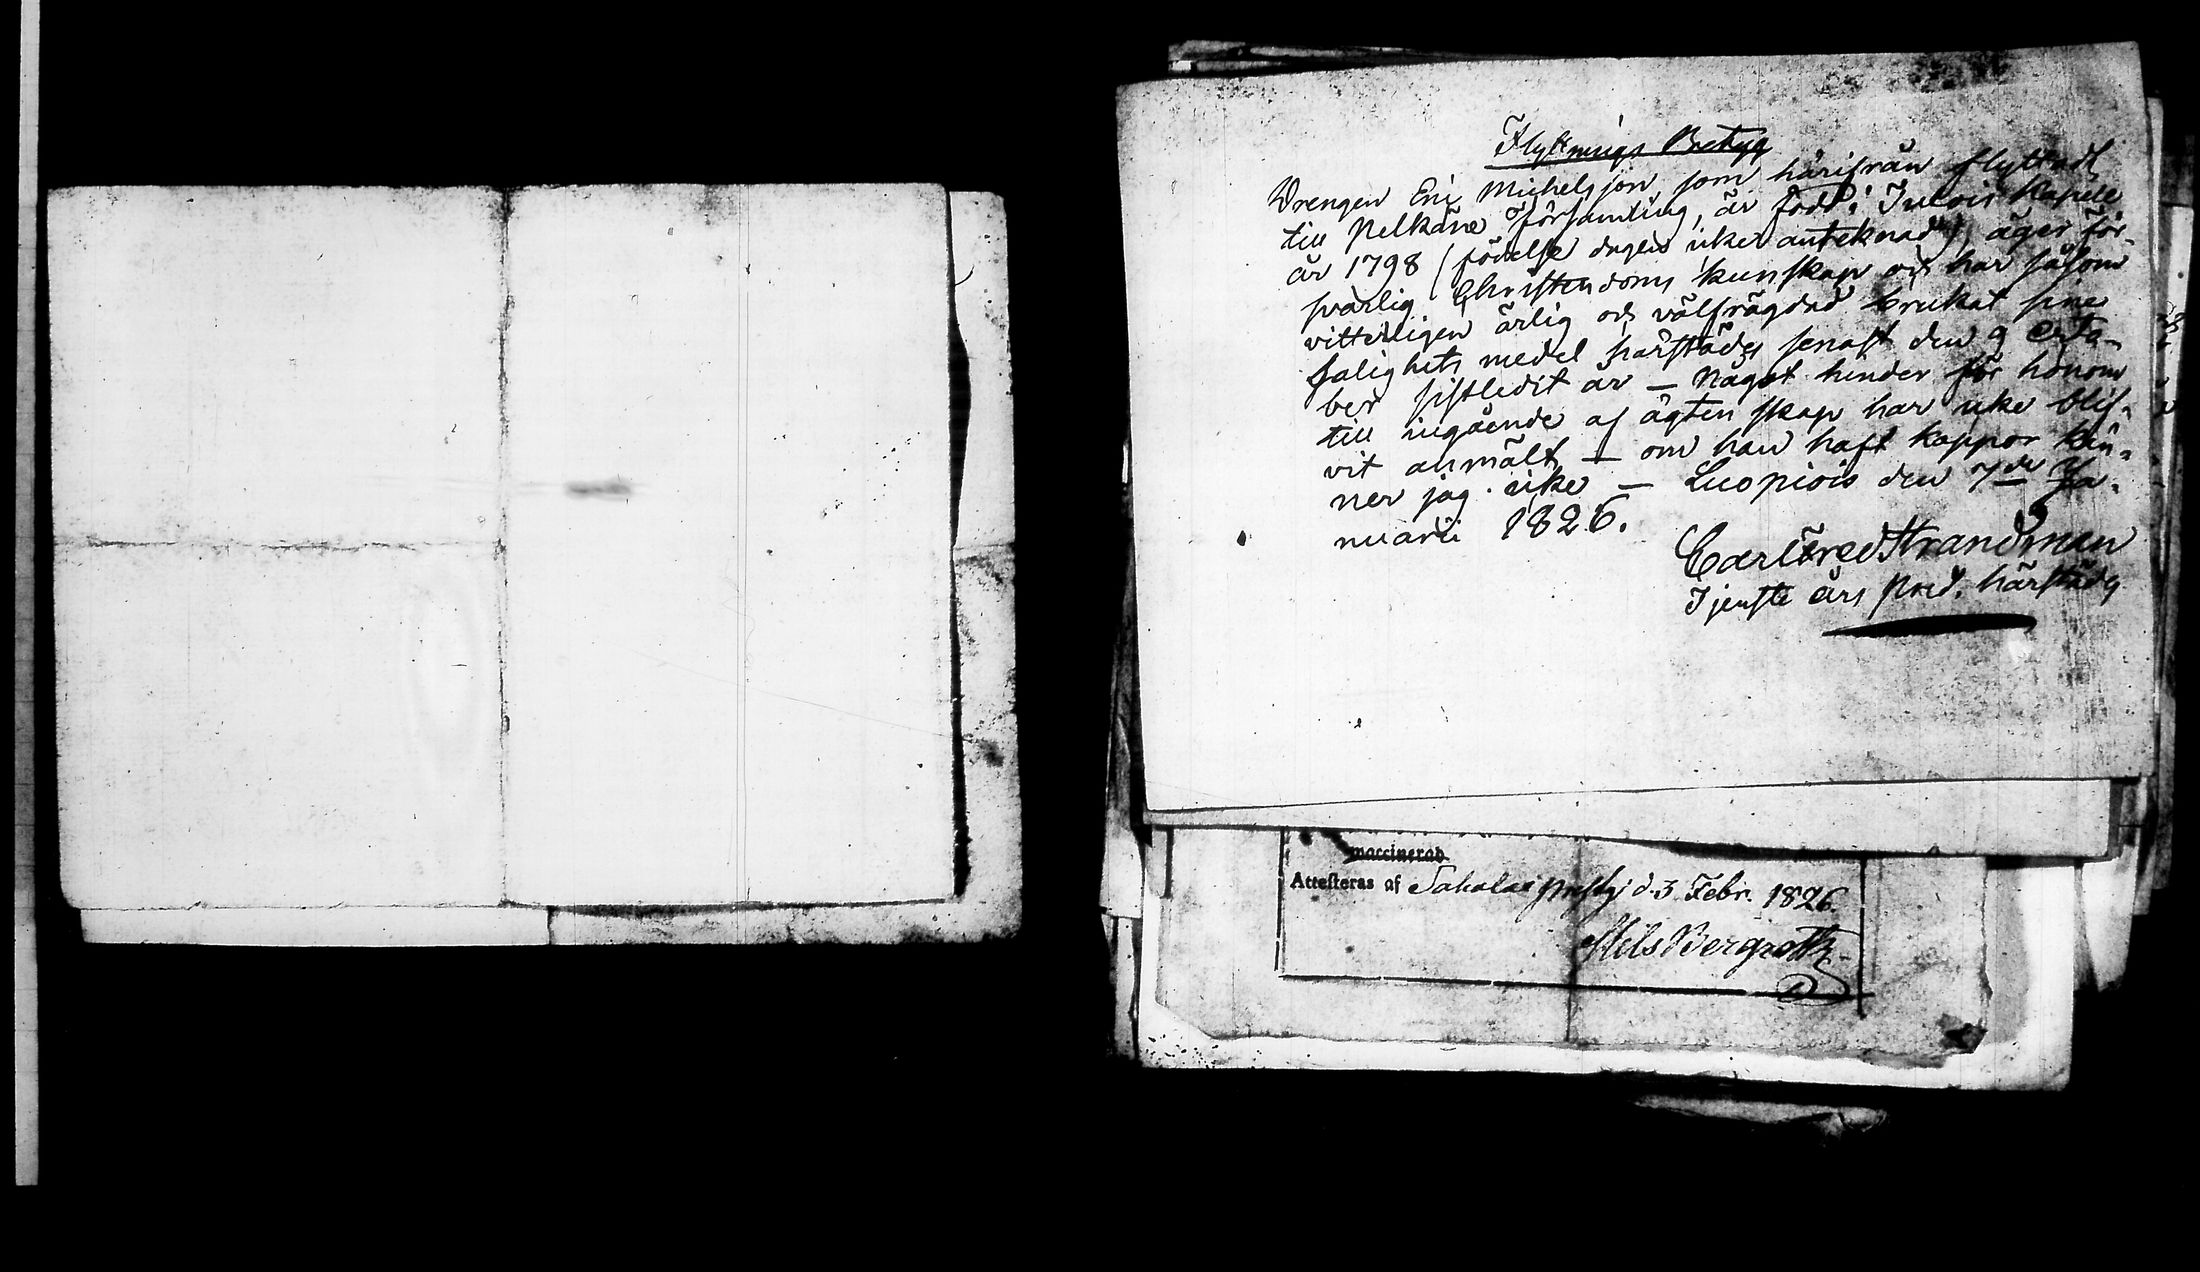 Flyttnings Betyg
Drengen Eric Michelsson, som härifrån flyttadt
till Pelkäne Församling, är född i Juvois Kapell
år 1798 (födelse dagen icke anteknad), äger för-
svarlig Christendoms kunskap och har såsom
vitterligen ärlig och välfrägdad brukat sine
salighets medel härstädes senast den 9 Octo-
ber sistledit år — Något hinder för honom
till ingående af ägtenskap har icke blif-
vit anmält — om han haft koppor kän-
ner jag icke — Luopiois den 7de Ja-
nuarii 1826.
Carl Fred Strandman
Tjenste års Pred. härstädes
vaccinerad
Attesteras af Sahalax Prestg. d. 3 Febr. 1826.
Nils Bergroth